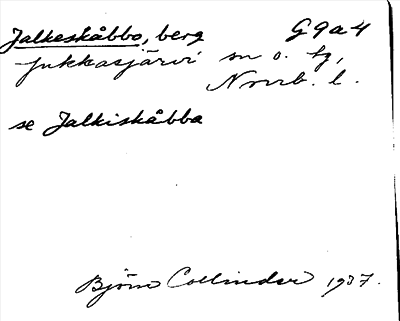 Jalkeskåbbo, berg G9a4
Jukkasjärvi sn o. tg,
Norrb. l.
se Jalkiskåbba
Björn Collinder 1937.